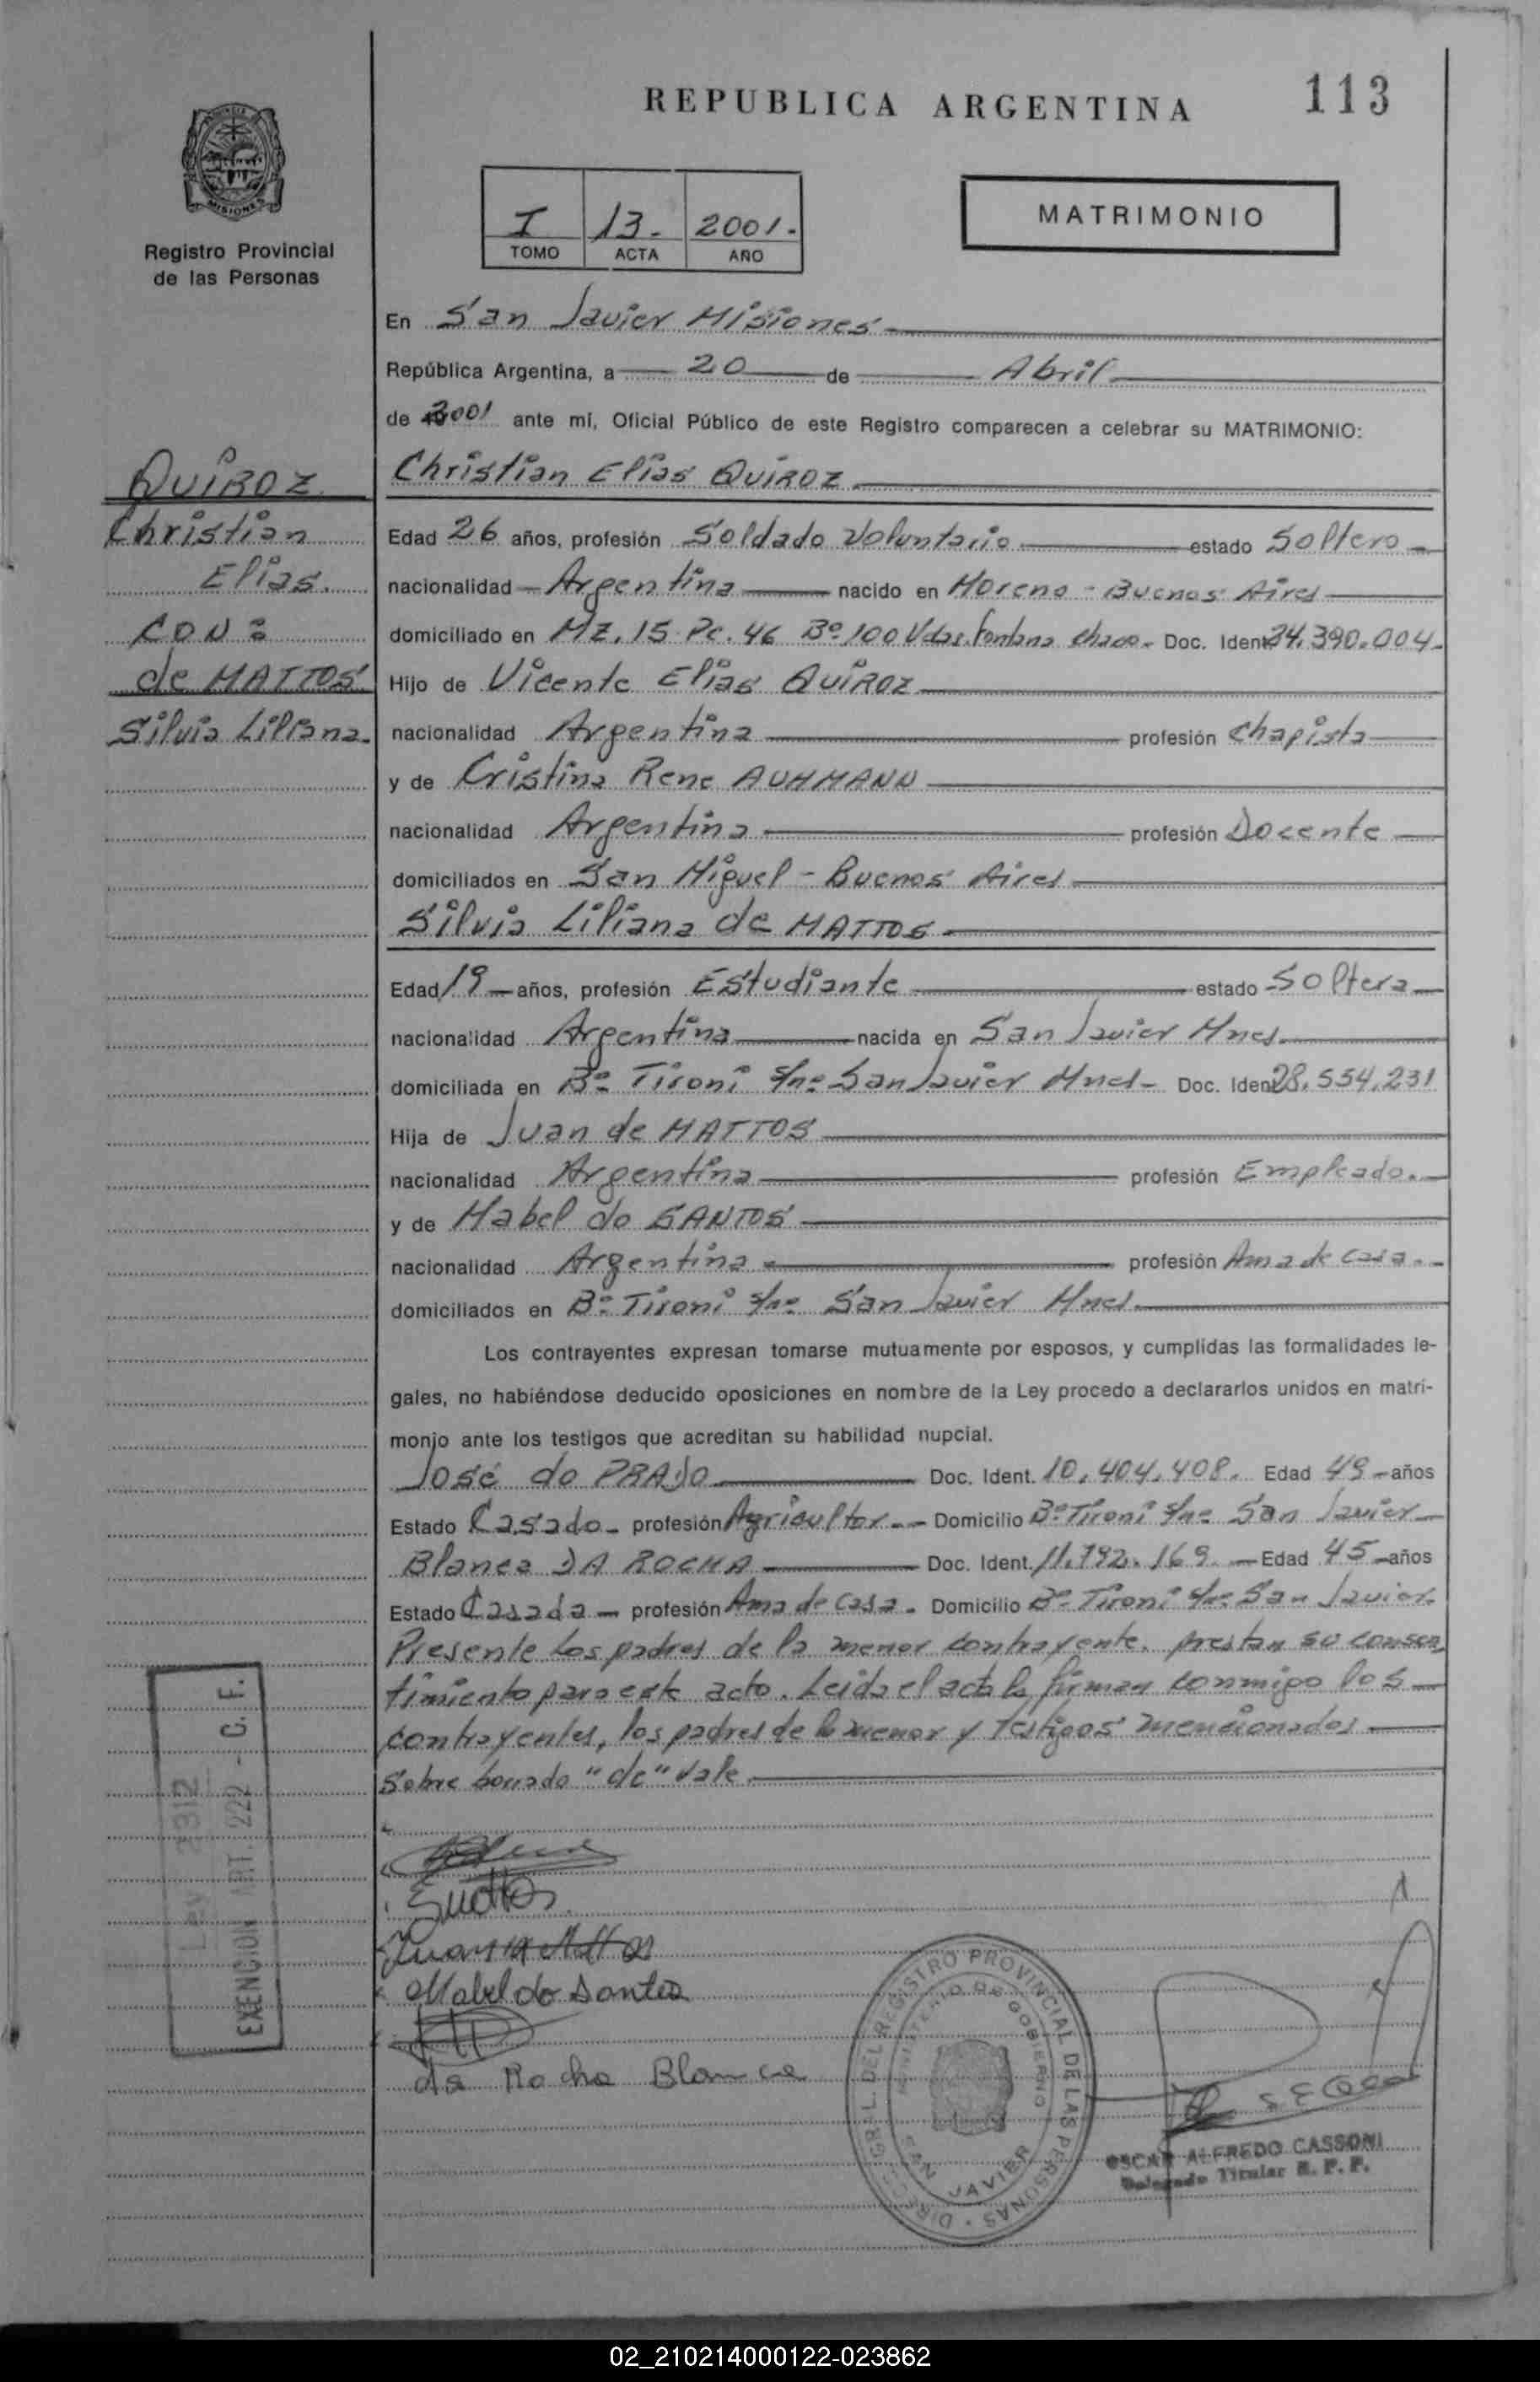 REPUBLICA ARGENTINA
113
MISIONES
Registro Provincial
de las Personas
I 13. 2001.
TOMO ACTA AÑO
MATRIMONIO
En San Javier Misiones
República Argentina, a 20 de Abril
de 2001 ante mí, Oficial Público de este Registro comparecen a celebrar su MATRIMONIO:
QUIROZ
Christian
Elias.
CON:
de MATTOS
Silvia Liliana.
Christian Elias QUIROZ
Edad 26 años, profesión Soldado Voluntario estado Soltero
nacionalidad Argentina nacido en Moreno - Buenos Aires
domiciliado en Mz. 15 Pc. 46 Bº 100 Vdas. Fontana Chaco. Doc. Ident. 24.390.004.
Hijo de Vicente Elias QUIROZ
nacionalidad Argentina profesión Chapista
y de Cristina Rene AUHMANN
nacionalidad Argentina profesión Docente
domiciliados en San Miguel - Buenos Aires
Silvia Liliana de MATTOS
Edad 19 años, profesión Estudiante estado Soltera
nacionalidad Argentina nacida en San Javier Mnes.
domiciliada en Bº Tironi s/nº San Javier Mnes- Doc. Ident. 28.554.231
Hija de Juan de MATTOS
nacionalidad Argentina profesión Empleado.
y de Mabel do SANTOS
nacionalidad Argentina profesión Ama de casa.
domiciliados en Bº Tironi s/nº San Javier Mnes.
Los contrayentes expresan tomarse mutuamente por esposos, y cumplidas las formalidades le-
gales, no habiéndose deducido oposiciones en nombre de la Ley procedo a declararlos unidos en matri-
monio ante los testigos que acreditan su habilidad nupcial.
José do PRADO Doc. Ident. 10.404.408. Edad 49 años
Estado Casado profesión Agricultor. Domicilio Bº Tironi s/nº San Javier
Blanca DA ROCHA Doc. Ident. 11.792.169 Edad 45 años
Estado Casada profesión Ama de Casa. Domicilio Bº Tironi s/nº San Javier.
Presente los padres de la menor contrayente. prestan su consen
timiento para este acto. Leida el acta la firman conmigo los
contrayentes, los padres de la menor y testigos mencionados
Sobre borrado "de" Vale.
Ley 2312
EXENCION ART. 222 - C. F.
Mabel do Santos
da Rocha Blanca
DIREC. GRAL. DEL REGISTRO PROVINCIAL DE LAS PERSONAS
MINISTERIO DE GOBIERNO
SAN JAVIER
OSCAR ALFREDO CASSONI
Delegado Titular R. P. P.
02_210214000122-023862